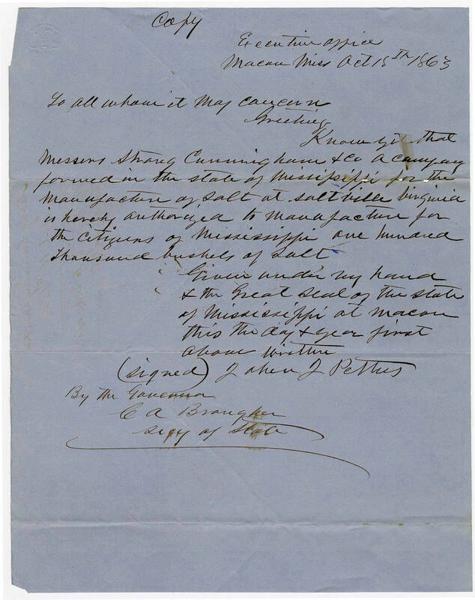 Copy
Executive office
Macon Miss Oct 15th 1863
To all whom it May concern
Greeting
Know ye that
Messers Strong Cunningham & Co A Company
formed in the state of Mississippi for the
Manufacture of Salt at Saltville Virginia
is hereby authorized to Manufacture for
the Citizens of Mississippi one hundred
thousand bushels of Salt
Given under my hand
& the Great Seal of the state
of Mississippi at Macon
this the day & year first
above written
(signed) John J Pettus
By the Governor
C A Brougher
Secy of State